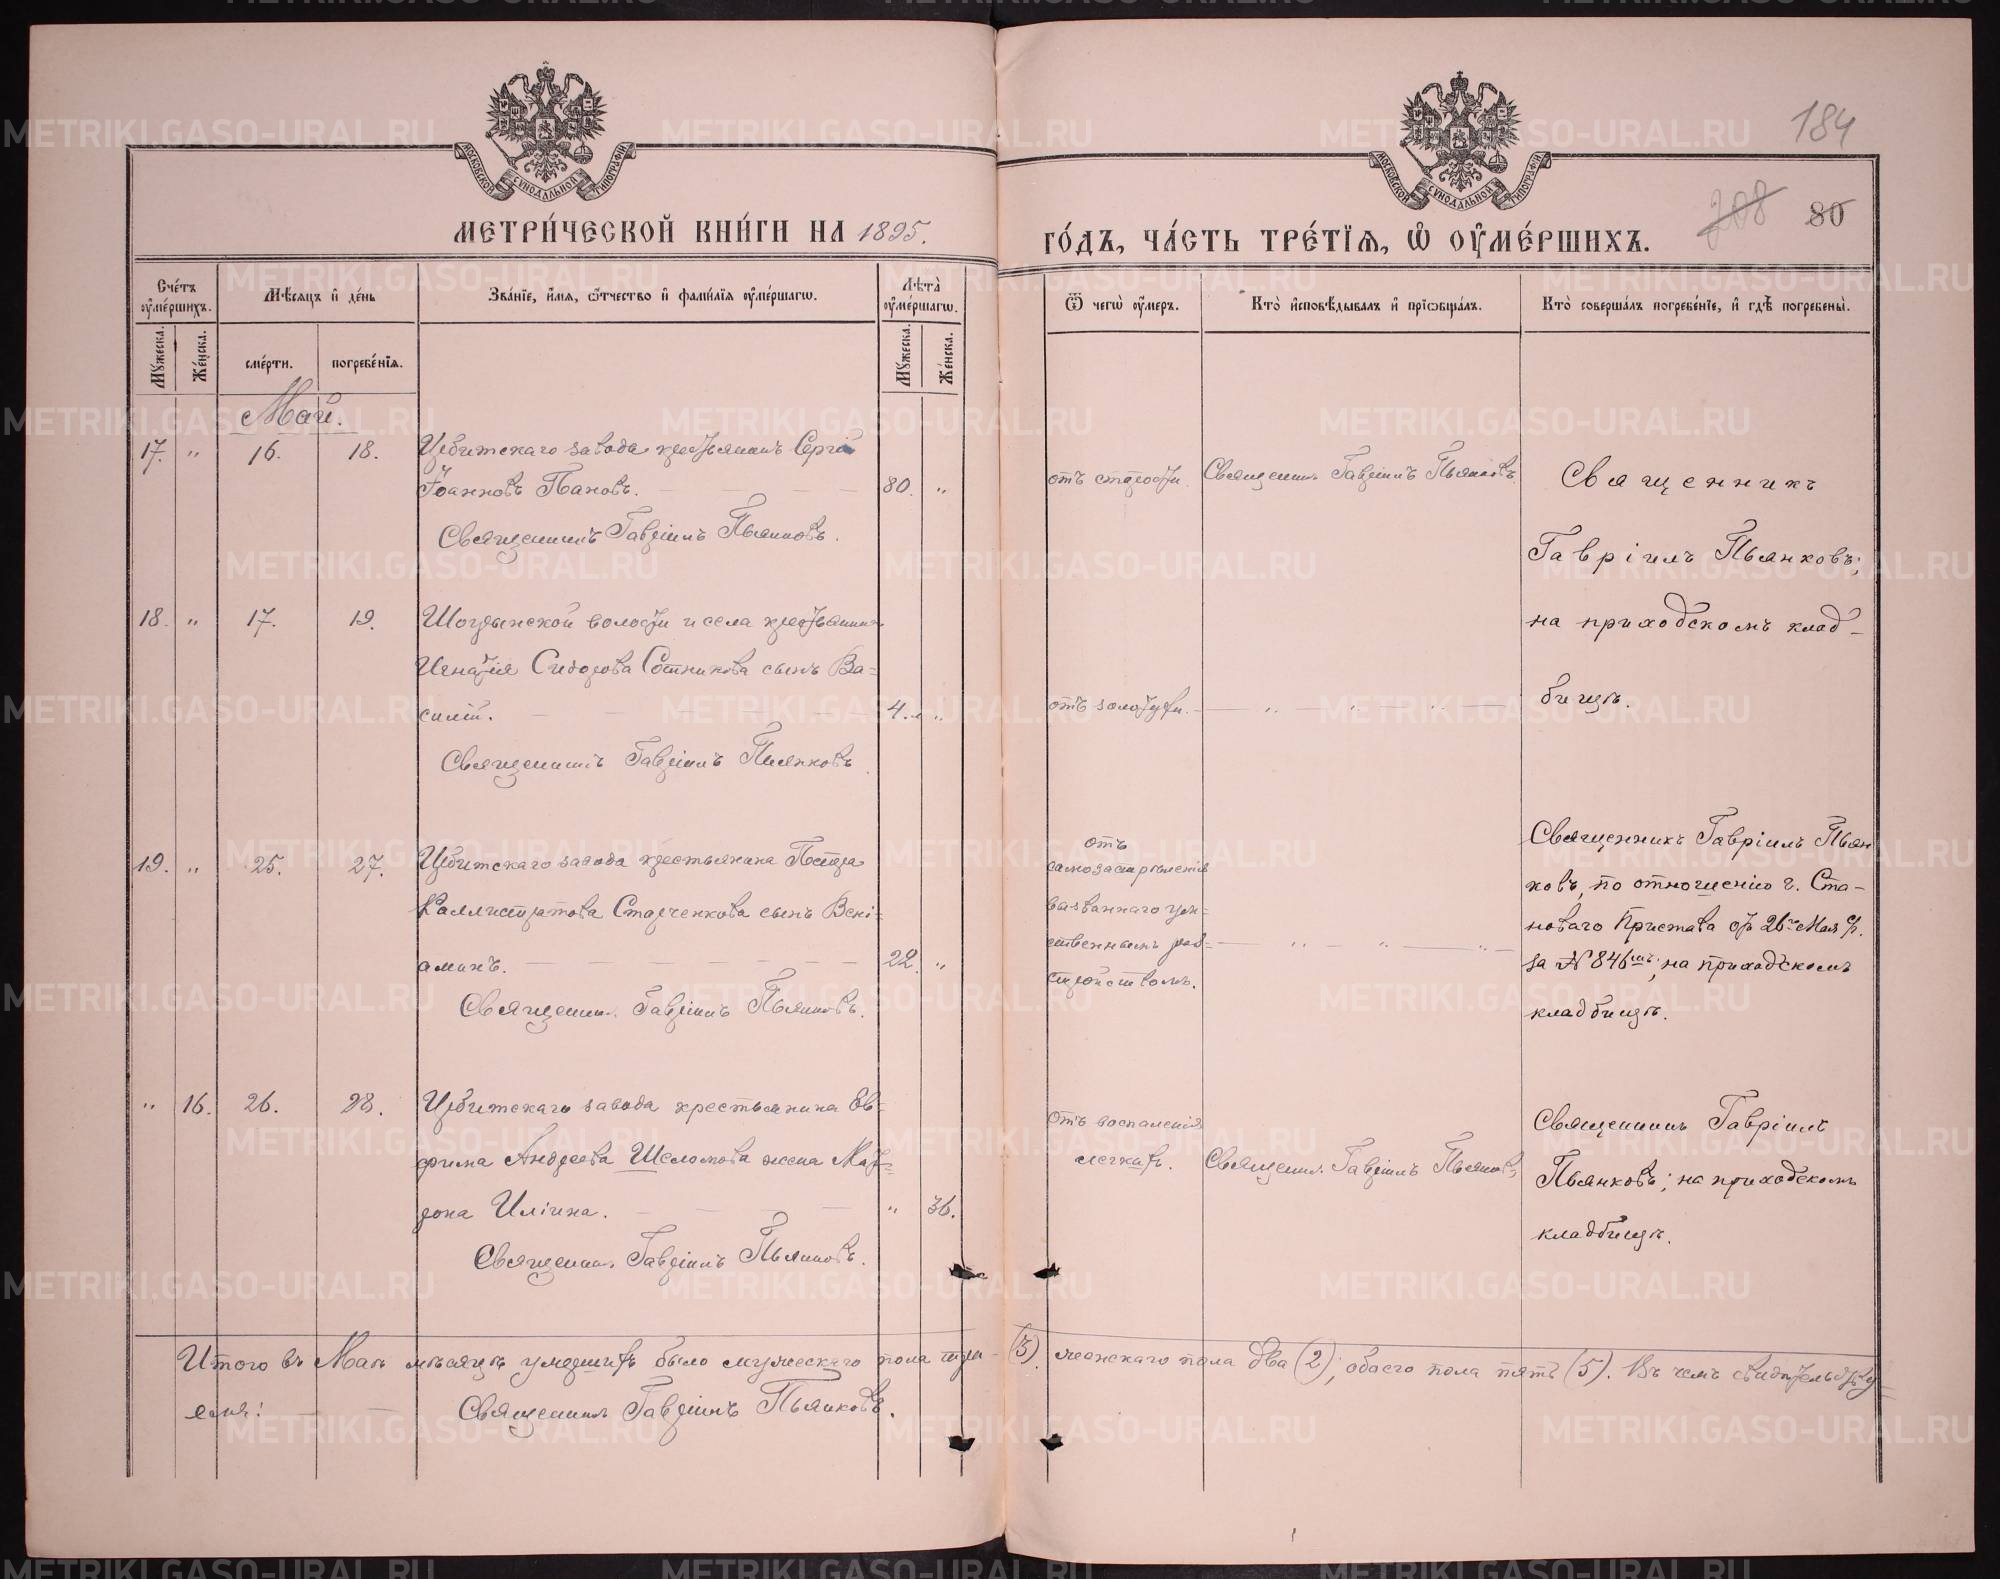 184
208 80
МОСКОВСКОЙ СѴНОДАЛЬНОЙ ТИПОГРАФІИ
МОСКОВСКОЙ СѴНОДАЛЬНОЙ ТИПОГРАФІИ
МЕТРИ́ЧЕСКОЙ КНИ́ГИ НА 1895.
ГО́ДЪ, ЧА́СТЬ ТРЕ́ТІЯ, Ѡ҆ ОУ҆МЕ́РШИХЪ.
Сче́тъ оу҆ме́ршихъ.
Мѣ́сяцъ и҆ де́нь
Зва́ніе, и҆́мя, ѻ҆́тчество и҆ фами́лія оу҆ме́ршагѡ.
Лѣ́та оу҆ме́ршагѡ.
Ѿ чегѡ̀ оу҆́меръ.
Кто̀ и҆сповѣ́дывалъ и҆ прїѡбща́лъ.
Кто̀ соверша́лъ погребе́ніе, и҆ гдѣ̀ погребены̀.
Мꙋ́жеска.
Же́нска.
сме́рти.
погребе́нія.
Мꙋ́жеска.
Же́нска.
Май.
17. „ 16. 18. Ирбитскаго завода крестьянинъ Сергій
Іоанновъ Пановъ. 80. „
Священникъ Гавріилъ Пьянковъ.
отъ старости. Священникъ Гавріилъ Пьянковъ.
Священникъ
Гавріилъ Пьянковъ;
на приходскомъ клад-
бищѣ.
18. „ 17. 19. волости и села крестьянина
Игнатія Сидорова Сотникова сынъ Ва-
силій. 4. „
Священникъ Гавріилъ Пьянковъ
отъ золотухи. „ „ „
19. „ 25. 27. Ирбитскаго завода крестьянина Петра
Каллистратова Старченкова сынъ Вені-
аминъ. 22. „
Священник. Гавріилъ Пьянковъ.
отъ
вызваннаго ум-
ственнымъ раз-
стройствомъ.
„ „ „
Священникъ Гавріилъ Пьян
ковъ, по отношенію г. Ста-
новаго Пристава отъ 26го Мая с/г.
за № 846мъ; на приходскомъ
кладбищѣ.
„ 16. 26. 28. Ирбитскаго завода крестьянина Ев-
фима Андреева Шеломова жена Мат-
рона Иліина. „ 36.
Священник. Гавріилъ Пьянковъ.
Отъ воспаленія
легкихъ. Священник. Гавріилъ Пьянковъ;
Священникъ Гавріилъ
Пьянковъ; на приходскомъ
кладбищѣ.
Итого въ Маѣ мѣсяцѣ умершихъ было мужескаго пола три (3) женскаго пола два (2); обоего пола пять (5). Въ чемъ свидѣтельству-
емъ:
Священникъ Гавріилъ Пьянковъ.
METRIKI.GASO-URAL.RU